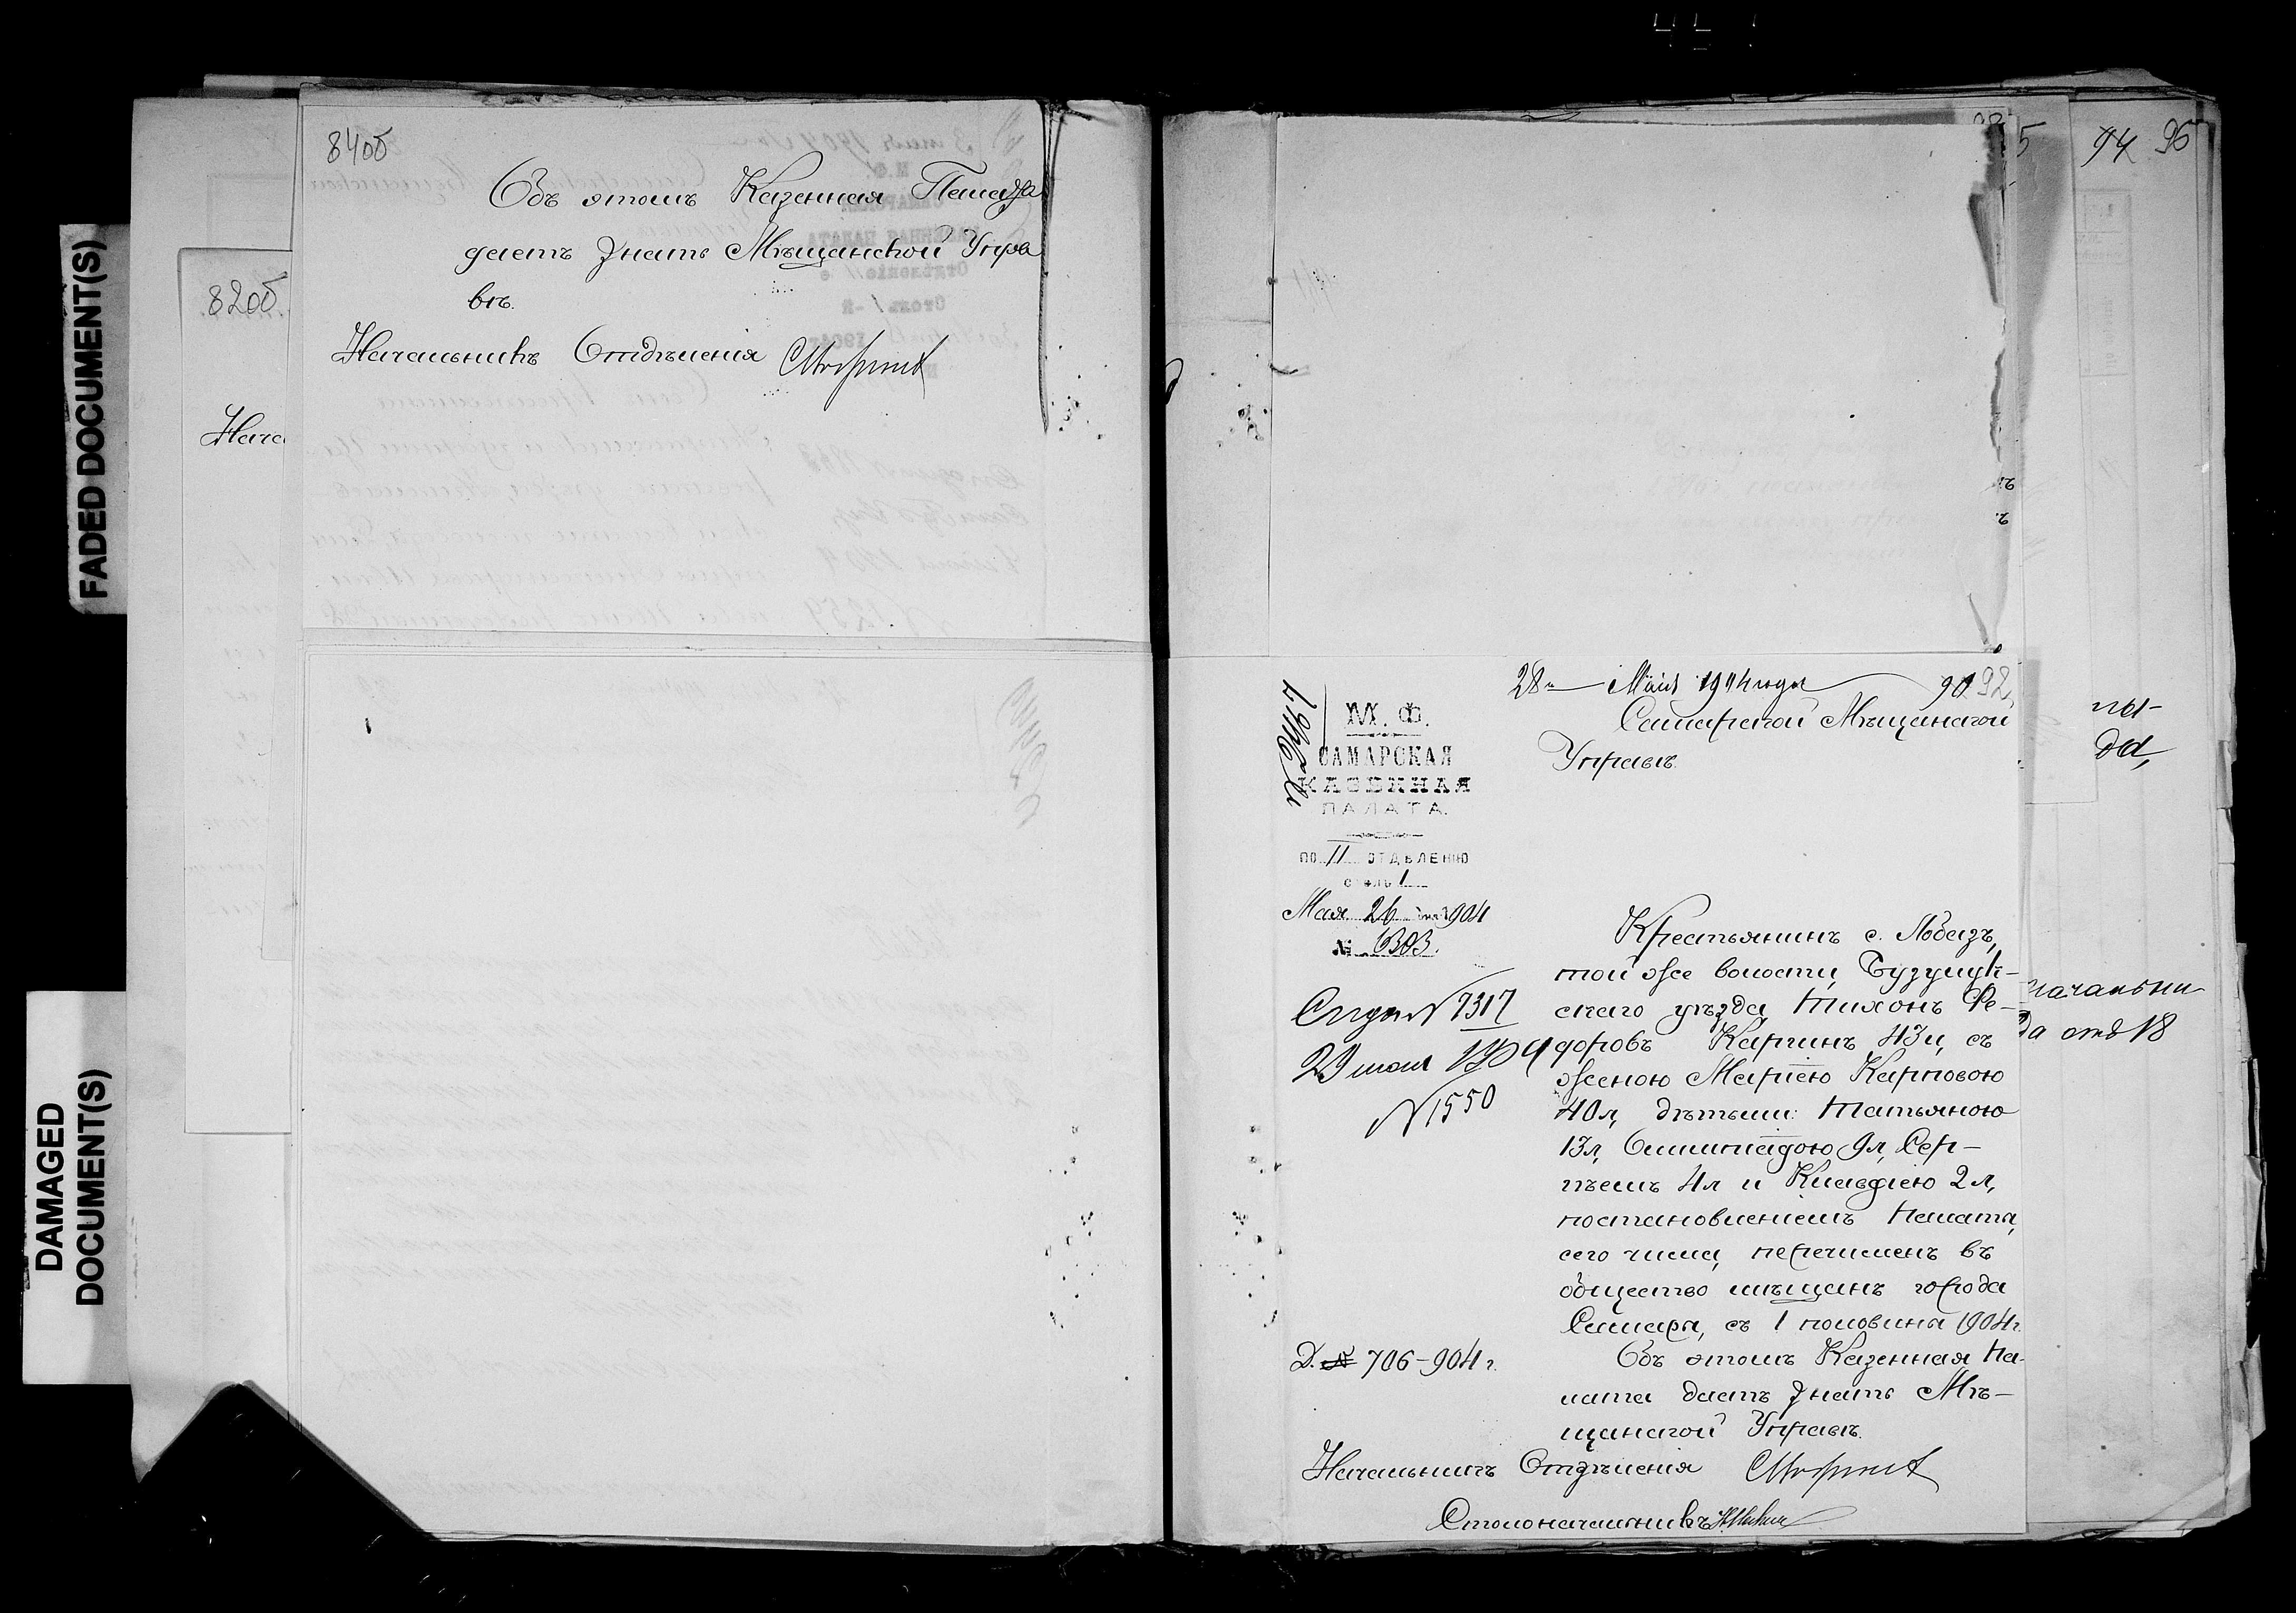 FADED DOCUMENT(S)
DAMAGED
DOCUMENT(S)
84об
Объ этомъ Казенная Палата
даетъ знать Мѣщанской Упра
вѣ.
Начальникъ Отдѣленія
82об
Нача
5
94 96
28 Мая 1904 года 90 92
Самарской Мѣщанской
Управѣ.
М. Ф.
САМАРСКАЯ
КАЗЕННАЯ
ПАЛАТА.
ПО II ОТДѢЛЕНІЮ
столъ 1
Мая 26 дня 1904
№ 6303.
Крестьянинъ с. Лобазъ,
той же волости, Бузулук-
скаго уѣзда Тихонъ Ѳе-
доровъ Каргинъ 43 л, съ
женою Маріею Карповою
40 л, дѣтьми: Татьяною
13 л, Олимпіадою 9 л, Сер-
гѣемъ 4 л и Клавдіею 2 л,
постановленіемъ Палаты,
сего числа, перечисленъ въ
общество мѣщанъ города
Самары, съ 1 половины 1904 г.
Объ этомъ Казенная Па-
лата даетъ знать Мѣ-
щанской Управѣ.
№ 7317
29 мая 1904
№ 1550
Д. № 706-904 г.
Начальникъ Отдѣленія
Столоначальникъ
на-
да,
начальни
да отд 18